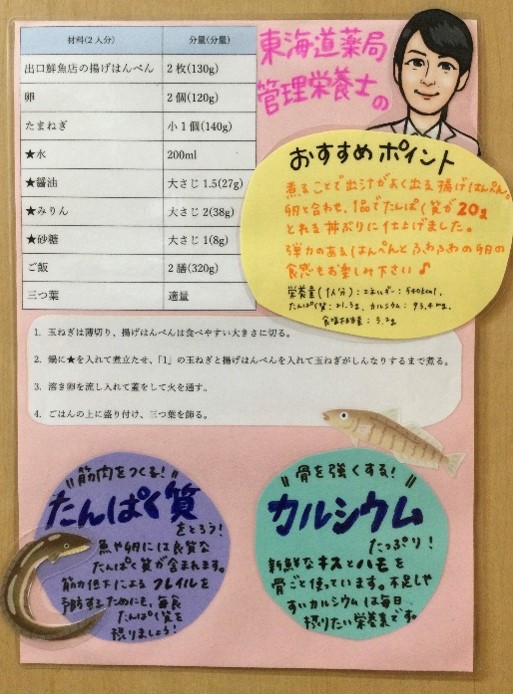 材料(2人分) 分量(分量)
出口鮮魚店の揚げはんぺん 2枚(130g)
卵 2個(120g)
たまねぎ 小1個(140g)
★水 200ml
★醤油 大さじ1.5(27g)
★みりん 大さじ2(38g)
★砂糖 大さじ1(8g)
ご飯 2膳(320g)
三つ葉 適量
東海道薬局
管理栄養士の
おすすめポイント
煮ることで出汁がよく出る揚げはんぺん。
卵と合わせ、1品でたんぱく質が20g
とれる丼ぶりに仕上げました。
弾力のあるはんぺんとふわふわの卵の
食感もお楽しみ下さい♪
栄養量(1人分):エネルギー:540kcal,
たんぱく質:21.3g、カルシウム:93.4mg、
食塩相当量:3.2g
1. 玉ねぎは薄切り、揚げはんぺんは食べやすい大きさに切る。
2. 鍋に★を入れて煮立たせ、「1」の玉ねぎと揚げはんぺんを入れて玉ねぎがしんなりするまで煮る。
3. 溶き卵を流し入れて蓋をして火を通す。
4. ごはんの上に盛り付け、三つ葉を飾る。
"筋肉をつくる!"
たんぱく質
をとろう!
魚や卵には良質な
たんぱく質が含まれます。
筋力低下によるフレイルを
予防するためにも、毎食
たんぱく質を
摂りましょう!
"骨を強くする!"
カルシウム
たっぷり!
新鮮なキスとハモを
骨ごと使っています。不足しや
すいカルシウムは毎日
摂りたい栄養素です。